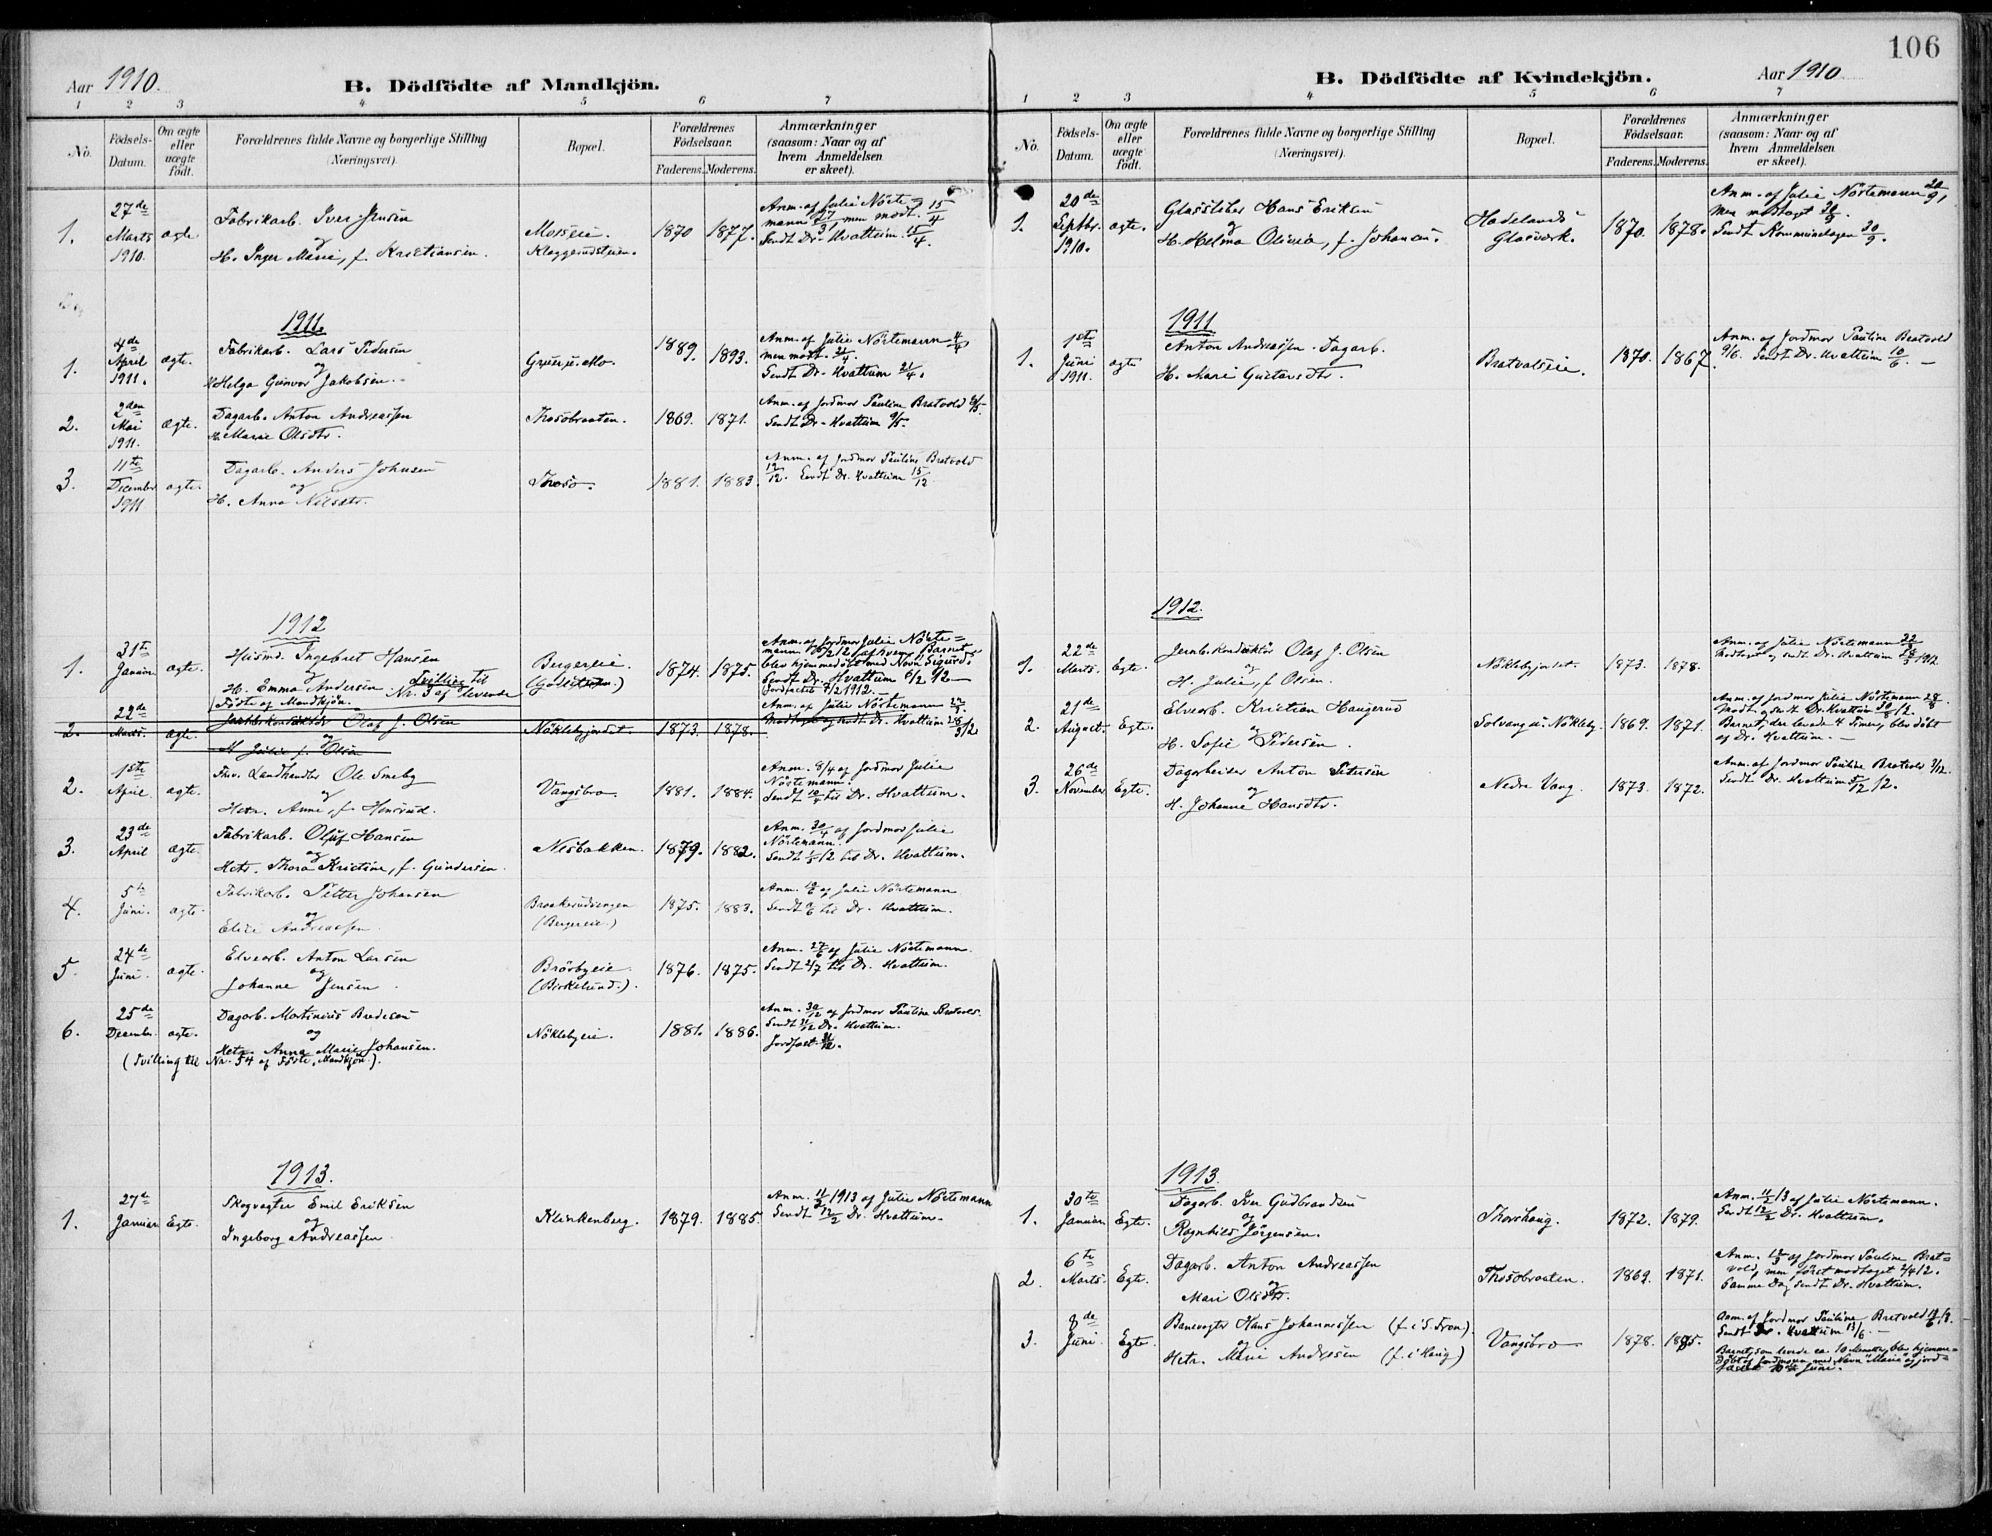 106
Aar 1910.
B. Dödfödte af Mandkjön.
1 2 3 4 5 6 7
No.
Födsels-
Datum.
Om ægte
eller
uægte
födt.
Forældrenes fulde Navne og borgerlige Stilling
(Næringsvei).
Bopæl.
Forældrenes
Födselsaar.
Faderens. Moderens.
Anmærkninger
(saasom: Naar og af
hvem Anmeldelsen
er skeet).
1. 27de Marts 1910. ægte
Fabrikarb. Iver Jensen
og
H. Inger Marie, f. Kristiansen.
Moseeie.
1870 1877.
Anm. af Julie Nörte=
mann 27/3, men modt. 15/4
Sendt Dr. Hvattum 15/4.
1911.
1. 4de April 1911. ægte.
Fabrikarb. Lars Pedersen
og
H. Helga Gunvor Jakobsen.
1889. 1893.
Anm. af Julie Nörtemann
men modt. 21/4.
Sendt Dr. Hvattum 21/4.
2. 2den Mai 1911. Ægte.
Dagarb. Anton Andreassen
H. Marie Olsdtr.
Thosobraaten.
1869. 1871.
Anm. af Jordmor Pauline Bratvold
Sendt Dr. Hvattum 9/5.
3. 11te December 1911 ægte.
Dagarb. Anders Johnsen
og
H. Anna Nilsdtr.
Thoso.
1881. 1883.
Anm. af Jordmor Pauline Bratvold
12/12. Sendt Dr. Hvattum 15/12
1912
1. 31te Januar ægte.
Husmd. Ingebret Hansen
og
H. Emma Andersen Tvilling til
Nr. 3 af levende
Födte af Mandkjön.
Bergereie.
1874. 1875.
Anm. af Jordmor Julie Nörte=
mann 6/2 12, af hvem Barnet
blev hjemmedöbt med Navn Sigurd.
Sendt Dr. Hvattum 6/2 12
Jordfæstet 9/2 1912.
2. 22de Marts ægte.
Jernbkonduktör Olaf J. Olsen
og
H. Julie f. Olsen
Nöklebyjordet.
1873. 1878.
Anm. af Julie Nörtemann
Modtaget og sendt Dr. Hvattum 28/3 12
2. 1ste April ægte.
Fhv. Landhandler Ole Smeby
og
Hstr. Anne, f. Hensrud.
Vangsbro.
1881. 1884.
Anm. 8/4 af Jordmor Julie
Nörtemann.
Sendt 10/4 til Dr. Hvattum.
3. 23de April Ægte.
Fabrikarb. Oluf Hansen
og
Hstr. Thora Kristine, f. Gundersen.
Nesbakken.
1879. 1882.
Anm. 30/4 af Jordmor Julie
Nörtemann.
Sendt 1/5 12 til Dr. Hvattum.
4. 5te Juni. ægte.
Fabrikarb. Petter Johansen
og
Elise Andreassen.
(Bergereie.)
1875. 1883.
Anm. af Julie Nörtemann
Sendt til Dr. Hvattum.
5. 24de Juni. ægte.
Elvearb. Anton Larsen
og
Johanne Jensen.
Brörbyeie.
(Birkelund.)
1876. 1875.
Anm. 27/6 af Julie Nörtemann.
Sendt 2/7 til Dr. Hvattum.
6. 25de Decembr. ægte.
Dagarb. Martinius Bredesen
og
Hstr. Anna Marie Johansen.
(Tvilling til Nr. 54 af Födte, Mandkjön).
Nöklebyeie.
1881. 1886.
Anm. 30/12 af Jordmor Pauline Bratvold.
Sendt 31/12 Dr. Hvattum.
Jordfæst.
1913.
1. 27de Januar Egte.
Skogvogter Emil Eriksen
og
Ingeborg Andreassen.
Klinkenberg.
1879. 1885.
Anm. 11/2 1913 af Julie Nörtemann
Sendt 12/2 Dr. Hvattum.
B. Dödfödte af Kvindekjön.
Aar 1910
1 2 3 4 5 6 7
No.
Födsels-
Datum.
Om ægte
eller
uægte
födt.
Forældrenes fulde Navne og borgerlige Stilling
(Næringsvei).
Bopæl.
Forældrenes
Födselsaar.
Faderens. Moderens.
Anmærkninger
(saasom: Naar og af
hvem Anmeldelsen
er skeet).
1. 20de Septbr. 1910. ægte.
Glassliber Hans Eriksen
og
H. Helma Olivia, f. Johansen.
Hadelands
Glasværk.
1870. 1878.
Anm. af Julie Nörtemann
Men modtaget 30/9.
Sendt Kommunelægen 30/9.
1911
1. 1ste Juni 1911. ægte
Anton Andreassen. Dagarb.
H. Mari Gustavsdtr.
Bratvalseie.
1870. 1867.
Anm. af Jordmor Pauline Bratvold
9/6. Sendt Dr. Hvattum 10/6
1912.
1. 22de Marts. Egte.
Jernbkonduktör Olaf J. Olsen
og
H. Julie, f. Olsen.
Nöklebyjordet.
1873. 1878.
Anm. af Julie Nörtemann 22/3
Modtaget og sendt Dr. Hvattum 28/3 1912
2. 21de August. Egte.
Elvearb. Kristian Haugerud
og
H. Sofie Pedersen.
Solvang u. Nökleby.
1869. 1871.
Anm. af Jordmor Julie Nörtemann 28/8.
Modt. og sendt Dr. Hvattum 30/8 12.
Barnet, der levede 4 Timer, blev döbt
af Dr. Hvattum.
3. 26de November Egte.
Dagarbeider Anton Petersen
og
H. Johanne Hansdtr.
Nedre Vang.
1873. 1872.
Anm. af Jordmor Pauline Bratvold
Sendt Dr. Hvattum 5/12 12.
1913.
1. 30te Januar. Egte.
Dagarb. Iver Gudbrandsen
og
Ragnhild Jörgensen.
Thorshaug.
1872. 1879.
Anm. 11/2 13 af Julie Nörtemann.
Sendt 12/2 Dr. Hvattum.
2. 6te Marts. Egte.
Dagarb. Anton Andreassen
og
Mari Olsdtr.
Thosobraaten.
1869. 1871.
Anm. af Jordmor Pauline Brat=
vold, men först modtaget
Samme Dag sendt Dr. Hvattum.
3. 8de Juni. Egte.
Banevogter Hans Johannessen (f. i S. Fron).
og
Hstr. Marie Andresen (f. i Haug)
Vangsbro
1878. 1885.
Anm. af Jordmor Pauline Bratvold
Sendt Dr. Hvattum 13/6.
Barnet, som levede ca. 10 Minutter, blev hjemme=
döbt af Jordmoren med Navn "Marie" og jord=
fæstet Juni.